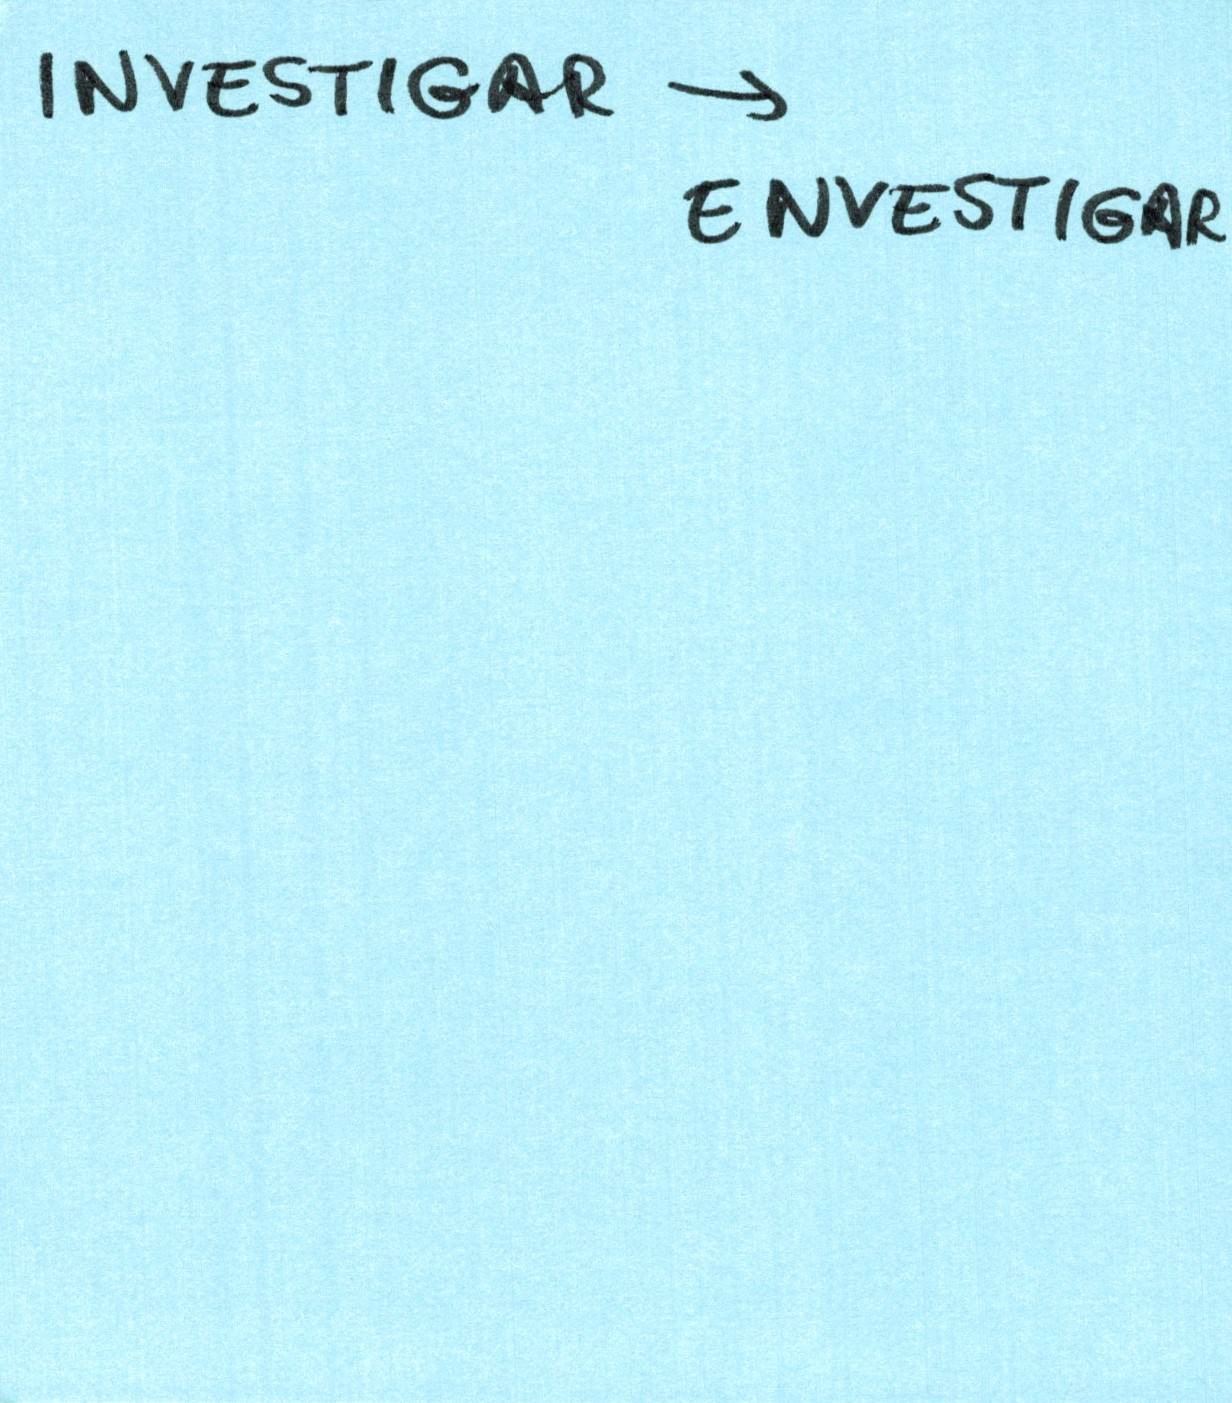 INVESTIGAR →
ENVESTIGAR